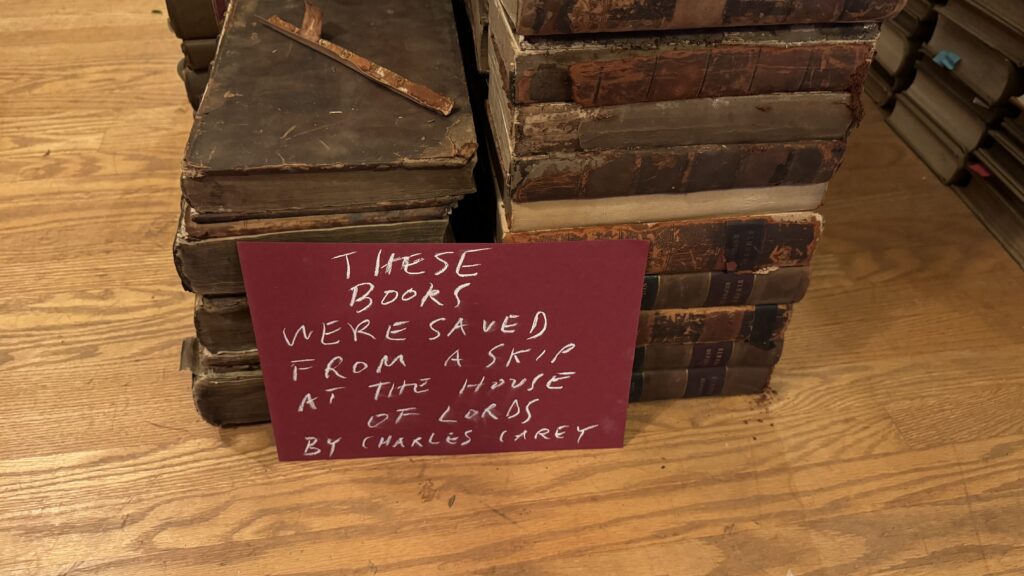 THESE
BOOKS
WERE SAVED
FROM A SKIP
AT THE HOUSE
OF LORDS
BY CHARLES CAREY